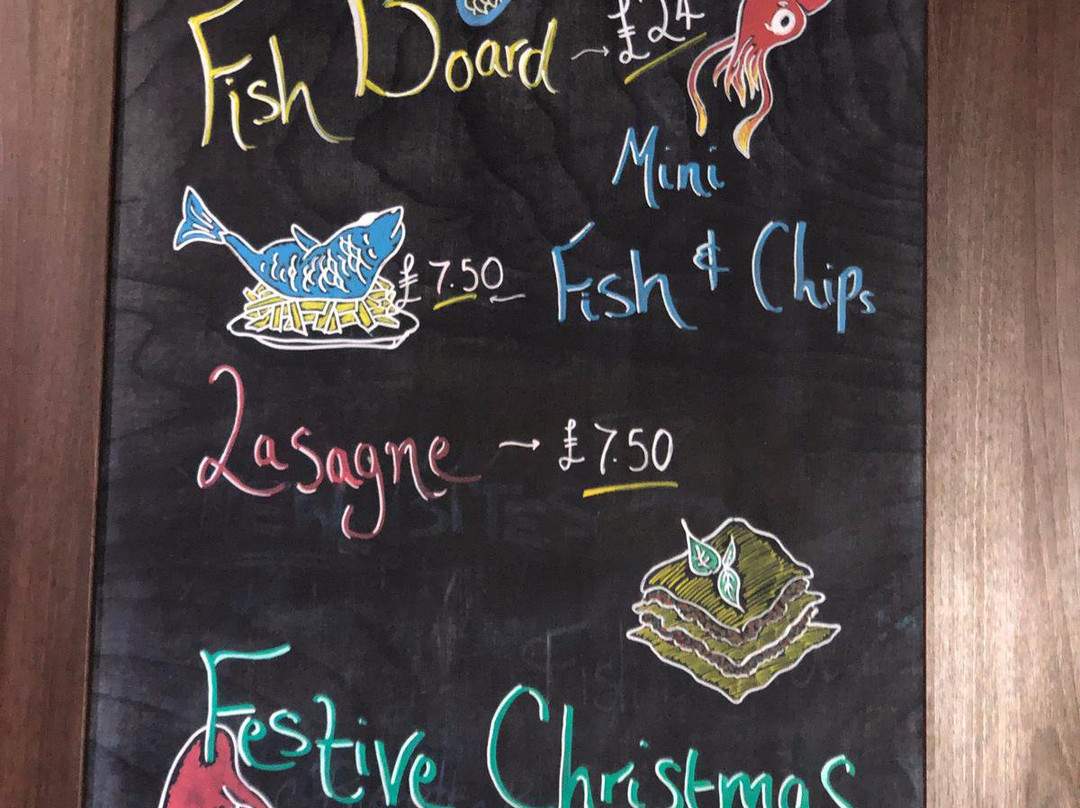 Fish Board → £24
Mini
£7.50 ← Fish & Chips
Lasagne → £7.50
Festive Christmas